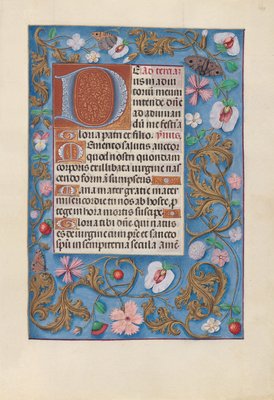 D E Ad terciā
us in adiu
torium meum
intende. dn̄e
ad adiuuan
dū me festīa
Gloria patri et filio. Ymnus.
Memento salutis auctor
quod nostri quondam
corporis ex illibata virgīe nas
cendo formā sumpseris.
Maria mater gratie mater
misericordie tu nos ab hoste p
tege in hora mortis suscipe
Gloria tibi dn̄e qui natus
es de virgine cum patre et sancto
spū in sempiterna secula amē